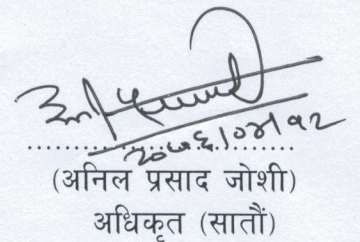 २०७६।०४।१२
(अनिल प्रसाद जोशी)
अधिकृत (सातौं)